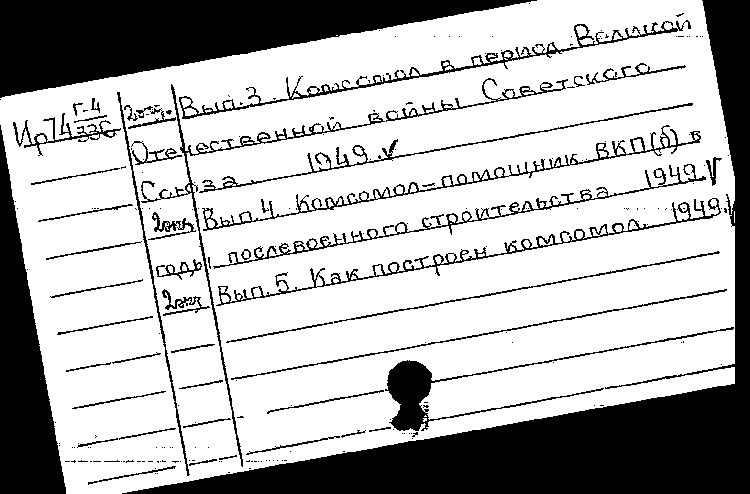 Ир74 Г-4/336 2экз. Вып.3. Комсомол в период Великой
Отечественной войны Советского
Союза. 1949.✓
2экз Вып.4. Комсомол=помощник ВКП(б) в
годы послевоенного строительства. 1949.✓
2экз Вып.5. Как построен комсомол. 1949.✓